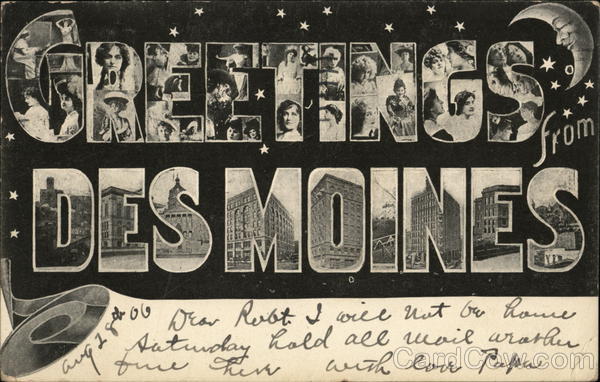 GREETINGS
from
DES MOINES
Aug 28th 06
Dear Robt. I will not be home
Saturday hold all mail weather
fine here with love Papa
CardCow.com